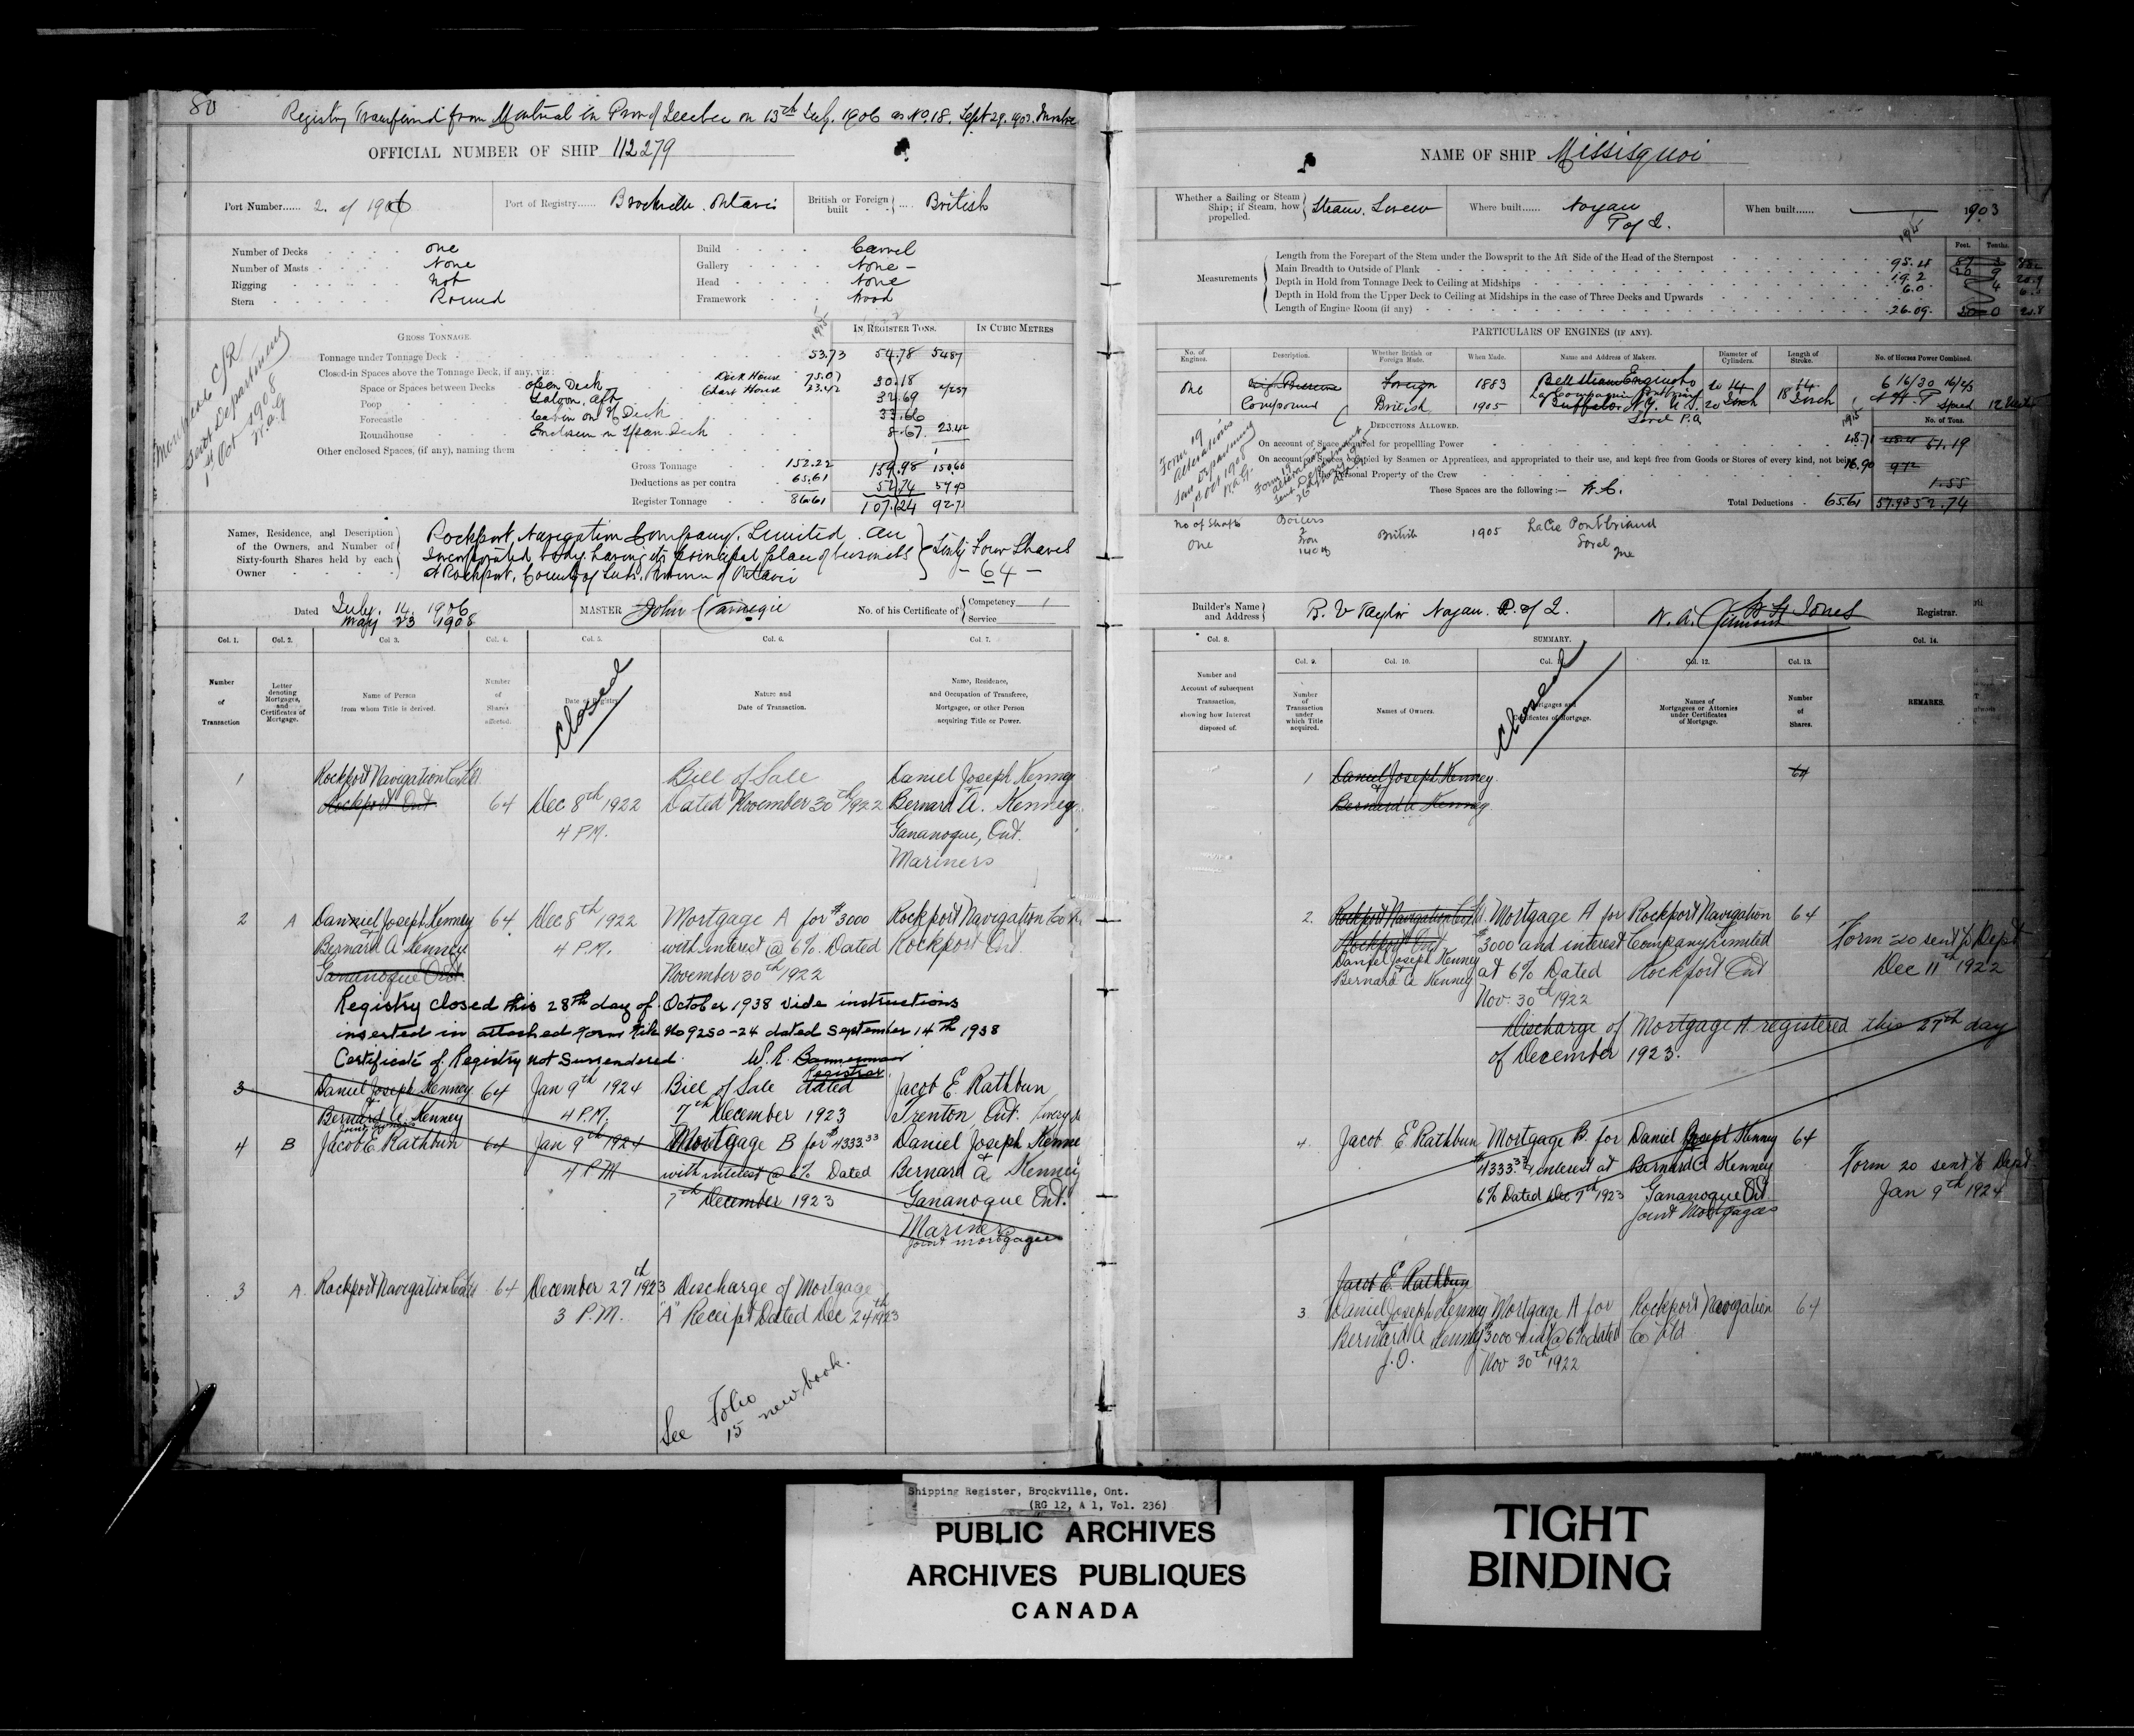 80
Registry Transferred from Montreal in Prov of Quebec on 13th July. 1906 as No. 18. Sept 29. 1903.
OFFICIAL NUMBER OF SHIP 112279
Port Number...... 2. of 1906
Port of Registry...... Brockville. Ontario
British or Foreign built .... British
Number of Decks one
Number of Masts None
Rigging Not
Stern Round
Build Carvel
Gallery None -
Head None
Framework Wood
GROSS TONNAGE.
1915
IN REGISTER TONS.
IN CUBIC METRES
Tonnage under Tonnage Deck 53.73 54.78 5487
Closed-in Spaces above the Tonnage Deck, if any, viz:
Space or Spaces between Decks open Deck Deck House 75.07 30.18
Poop Saloon, aft Chart House 23.42 32.69
Forecastle Cabin on Deck 33.66
Roundhouse Enclosure on Span Deck 8.67. 23.42
Other enclosed Spaces, (if any), naming them
Gross Tonnage 152.22 159.98 150.60
Deductions as per contra 65.61 52.74
Register Tonnage 86.61 107.24 92.71
Sent Department
1st Oct 1908
W.A.G
Names, Residence, and Description of the Owners, and Number of Sixty-fourth Shares held by each Owner
Rockport, Navigation Company, Limited. an
Incorporated body having its principal place of business
at Rockport, County of Leeds, Province of Ontario
Sixty Four Shares
- 64 -
Dated July. 14. 1906
May 23 1908
MASTER John Carnegie
No. of his Certificate of Competency
Service
Col. 1. Col. 2. Col. 3. Col. 4. Col. 5. Col. 6. Col. 7.
Number of Transaction
Letter denoting Mortgages, and Certificates of Mortgage.
Name of Person from whom Title is derived.
Number of Shares affected.
Date of Registry
Closed
Nature and Date of Transaction.
Name, Residence, and Occupation of Transferee, Mortgagee, or other Person acquiring Title or Power.
1 Rockport Navigation Co Ltd Bill of Sale Daniel Joseph Kenney
Rockport Ont 64 Dec 8th 1922 Dated November 30th 1922 Bernard A. Kenney
4 P.M. Gananoque, Ont.
Mariners
2 A Daniel Joseph Kenney 64 Dec 8th 1922 Mortgage A for $3000 Rockport Navigation Co
Bernard A Kenney 4 P.M. with interest @ 6%. Dated Rockport Ont
Gananoque Ont. November 30th 1922
Registry closed this 28th day of October 1938 vide instructions
inserted in attached form File No 9250-24 dated September 14th 1938
Certificate of Registry not Surrendered. W. R. Bannerman
Registrar
3 Daniel Joseph Kenney 64 Jan 9th 1924 Bill of Sale dated Jacob E. Rathbun
Bernard A. Kenney 4 P.M. 7th December 1923 Trenton Ont.
Joint owners
4 B Jacob E Rathbun 64 Jan 9th 1924 Mortgage B for $4333.33 Daniel Joseph Kenne
4 P.M with interest @ 6% Dated Bernard A Kenney
7th December 1923 Gananoque Ont.
Mariners
Joint mortgagees
3 A. Rockport Navigation Co Ltd 64 December 27th 1923 Discharge of Mortgage
3 P.M. "A" Receipt Dated Dec 24th 1923
See Folio
15 new book.
NAME OF SHIP Missisquoi
Whether a Sailing or Steam Ship; if Steam, how propelled. Steam, Screw
Where built...... Noyan
P of Q.
When built...... 1903
Measurements
1915
Feet. Tenths.
Length from the Forepart of the Stem under the Bowsprit to the Aft Side of the Head of the Sternpost
Main Breadth to Outside of Plank 19.2
Depth in Hold from Tonnage Deck to Ceiling at Midships 6.0
Depth in Hold from the Upper Deck to Ceiling at Midships in the case of Three Decks and Upwards
Length of Engine Room (if any) 26.09.
PARTICULARS OF ENGINES (IF ANY).
No. of Engines. Description. Whether British or Foreign Made. When Made. Name and Address of Makers. Diameter of Cylinders. Length of Stroke. No. of Horses Power Combined.
One High Pressure Foreign 1883 Bell Steam Engine Co
Compound British 1905 Buffalo. N.Y. U.S.
Sorel P.Q.
DEDUCTIONS ALLOWED.
1915
No. of Tons.
On account of Space required for propelling Power 48.71 61.19
On account of Spaces occupied by Seamen or Apprentices, and appropriated to their use, and kept free from Goods or Stores of every kind, not being 16.90
Personal Property of the Crew
These Spaces are the following:— W.C. 1.55
Total Deductions 65.61 57.93 52.74
Form 19
Alterations
Sent Department
1st Oct 1908
W.A.G.
No of Shafts
One
Boilers
British 1905
Sorel
Que
Builder's Name and Address R. V Taylor Noyan. P. of Q.
Registrar.
Col. 8. SUMMARY. Col. 14.
Col. 9. Col. 10. Col. 11. Col. 12. Col. 13.
Number and Account of subsequent Transaction, showing how Interest disposed of.
Number of Transaction under which Title acquired.
Names of Owners.
Mortgages and Certificates of Mortgage.
Closed
Names of Mortgagees or Attornies under Certificates of Mortgage.
Number of Shares.
REMARKS.
1 Daniel Joseph Kenney 64
Bernard A Kenney
2. Rockport Navigation Co Ltd. Mortgage A for Rockport Navigation 64
Rockport Ont $3000 and interest Company Limited
Daniel Joseph Kenney
Bernard A Kenney at 6% Dated Rockport Ont
Nov. 30th 1922
Form 20 sent to Dept
Dec 11th 1922
Discharge of Mortgage A registered this 27th day
of December 1923.
4. Jacob E Rathbun Mortgage B. for Daniel Joseph Kenney 64
$4333.33 & interest at Bernard A Kenney
6% Dated Dec 7th 1923 Gananoque Ont
Joint Mortgagees
Form 20 sent to Dept
Jan 9th 1924
Jacob E. Rathbun
3 Daniel Joseph Kenney Mortgage A for Rockport Navigation 64
Bernard A Kenney $3000 & int @ 6% dated Co Ltd
J.O. Nov 30th 1922
Shipping Register, Brockville, Ont.
(RG 12, A 1, Vol. 236)
PUBLIC ARCHIVES
ARCHIVES PUBLIQUES
CANADA
TIGHT
BINDING